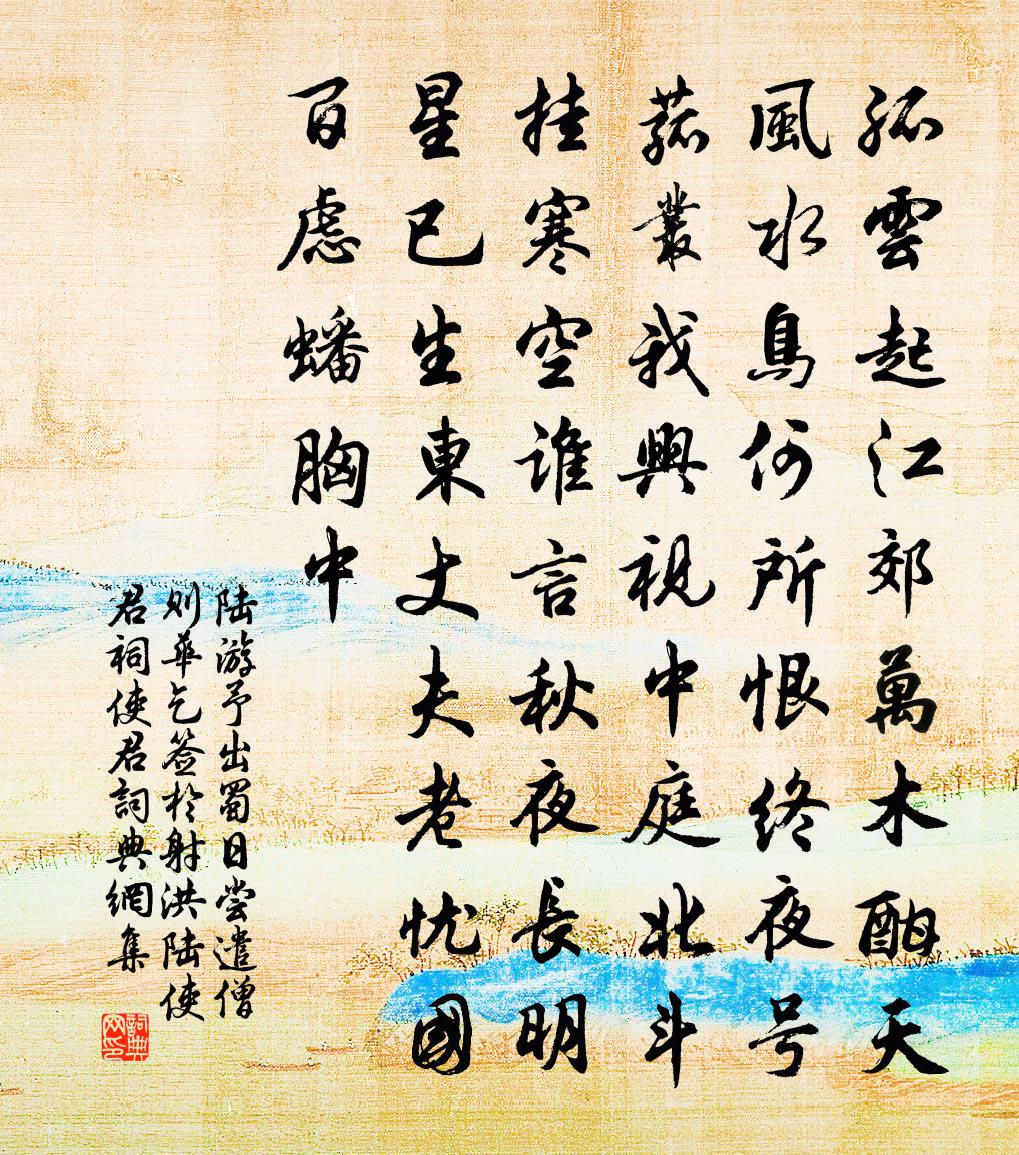 孤雲起江郊萬木酣天
風水鳥何所恨終夜号
菰叢我興視中庭北斗
挂寒空誰言秋夜長明
星已生東丈夫老忧國
百慮蟠胸中
陆游予出蜀日尝遣僧
则華乞签於射洪陆使
君祠使君詞典網集
詞典网印